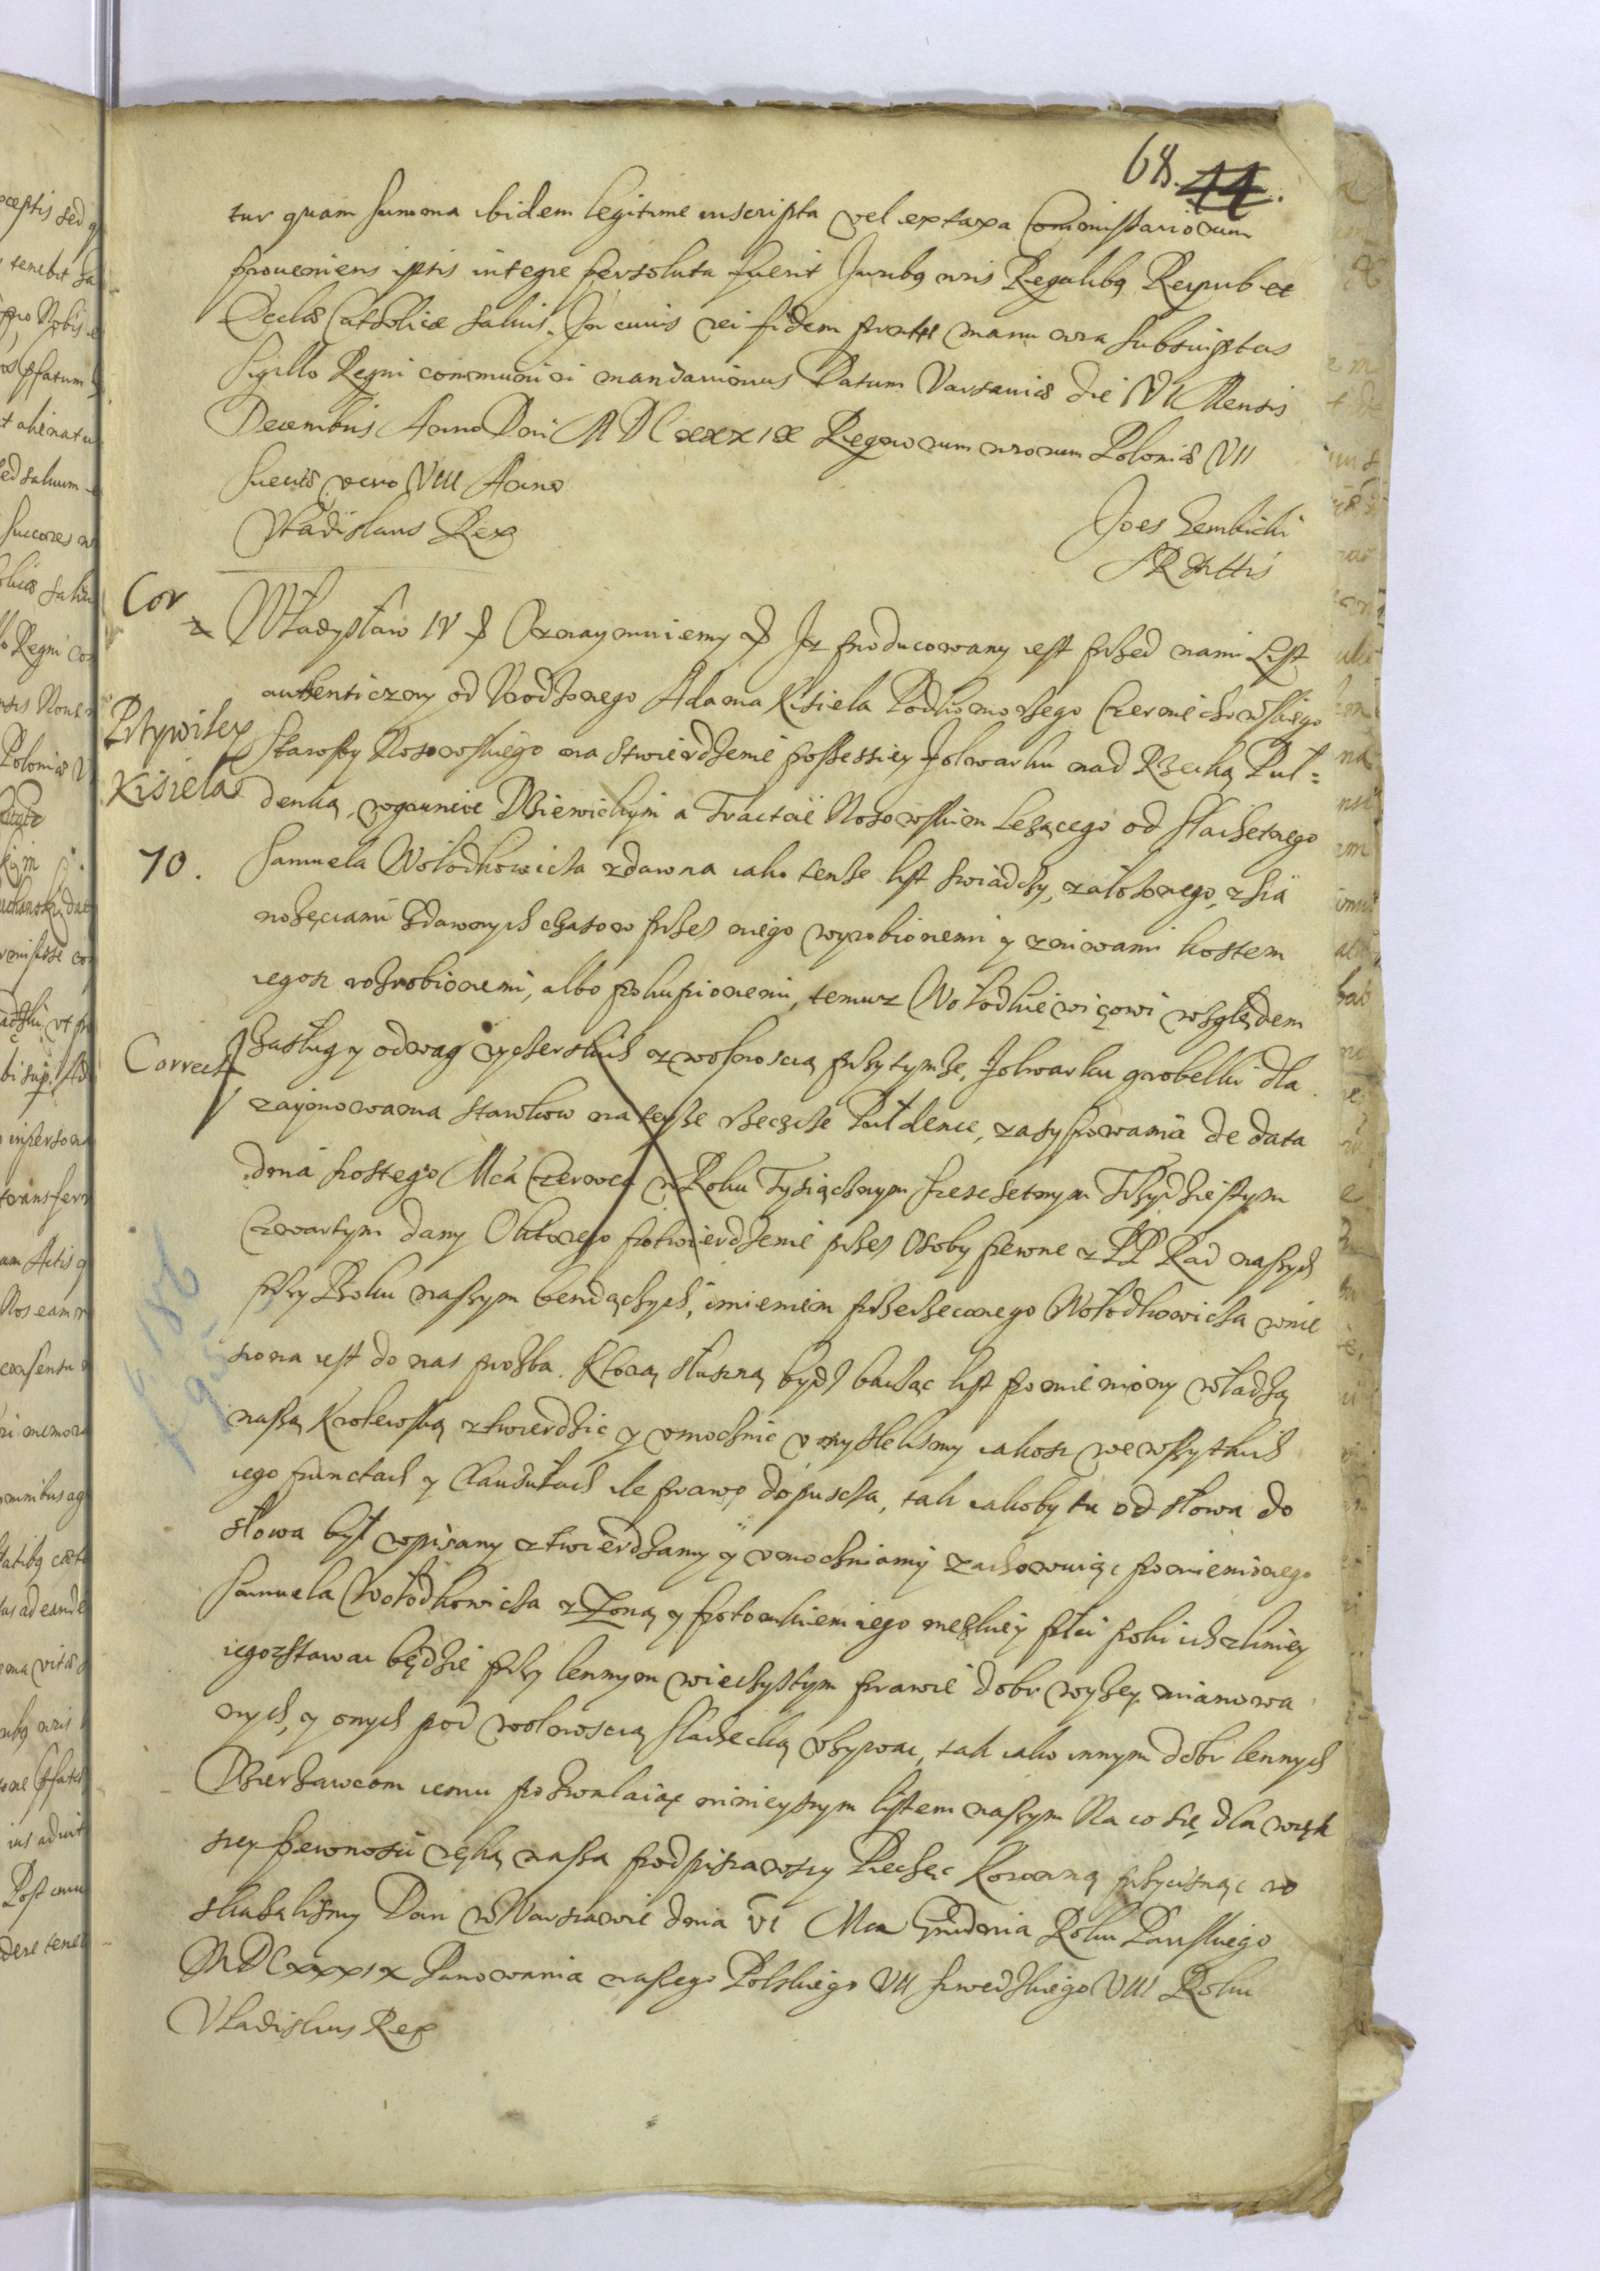 68. 44.
tur quam summa ibidem legitime inscripta vel ex taxa Commissariorum
proueniens ipsis integre persoluta fuerit Juribq nris Regalibq Reipub et
Ecclae Catholicae saluis. In cuius rei fidem pntes manu nra subscriptas
Sigillo Regni communiri mandauimus Datum Varsauiae die VI Mensis
Decembris Anno Dni MDCXXXIX Regnorum nrorum Poloniae VII
Sueciae vero VIII Anno
Vladislaus Rex
Joes Gembicki
Cor
Władysław IV Oznaymuiemy Jz producowany iest przed nami List
authenticzny od Vrodzonego Adama Kisiela Podkomorzego Czerniechowskiego
Prtywiley
Starosty Nosowskiego na stwierdzenie possessiey folwarku nad Rzeką Puł=
Kisiela
denką, wgrunicie Dziewickim a Tractcie Nosowskim Lezącego od slachetnego
70.
Samuela Wołodkowicza zdawna iako tenze list swiadczy, załozonego, z sia
nozęciami zdawnych czasow przez niego wyrobionemi y zniwami kosztem
iegosz rozrobionemi, albo pokupionemi, temusz Wołodkiewiczowi względem
Correct
zasług y odwag rycherskich z wolnoscią przytymze, folwarku grobelki dla
zaymowania stawkow na teyze rzeczce Pułdence, zasypowania de data
dnia szostego Mca Czerwca w Roku Tysiącznym szescsetnym Trzydziestym
Czwartym dany O ktorego potwierdzenie przez Osoby pewne z PP Rad naszych
przy Boku naszym bendących, imieniem przerzeconego Wołodkowicza wnie
siona iest do nas prozba. Ktorą słuszną bydz bacząc list pomieniony władzą
naszą Krolewską ztwierdzic y vmocnic vmyslelismy iakosz we wszytkich
iego punctach y Clausulach ile prawo dopuscza, tak iakoby tu od słowa do
słowa był wpisany ztwierdzamy y vmocniamy zachowuiąc pomienionego
Samuela Wołodkowicza z Zoną y potomkiem iego męzkiey płci poki ich zliniey
iegozstawac będzie przy lennym wieczystym prawie dobr wyzey mianowa
nych, y onych pod wolnoscią slachecką vzywac, tak iako innym dobr lennych
Dzierzawcom iemu pozwalaiąc ninieyszym listem naszym Na co się dla więk
szey pewnosci ręką naszą podpisawszy Pieczęc Koronną przycisnąc ro
skazalismy Dan w Warszawie dnia VI Mca Grudnia Roku Panskiego
MDCXXXIX Panowania naszego Polskiego VII szwedzkiego VIII Roku
Vladislaus Rex